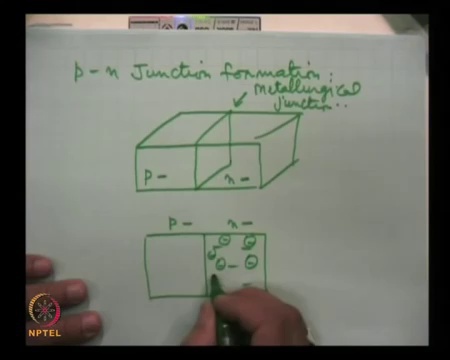 p - n Junction formation:
metallurgical
junction..
p - n -
p - n -
NPTEL